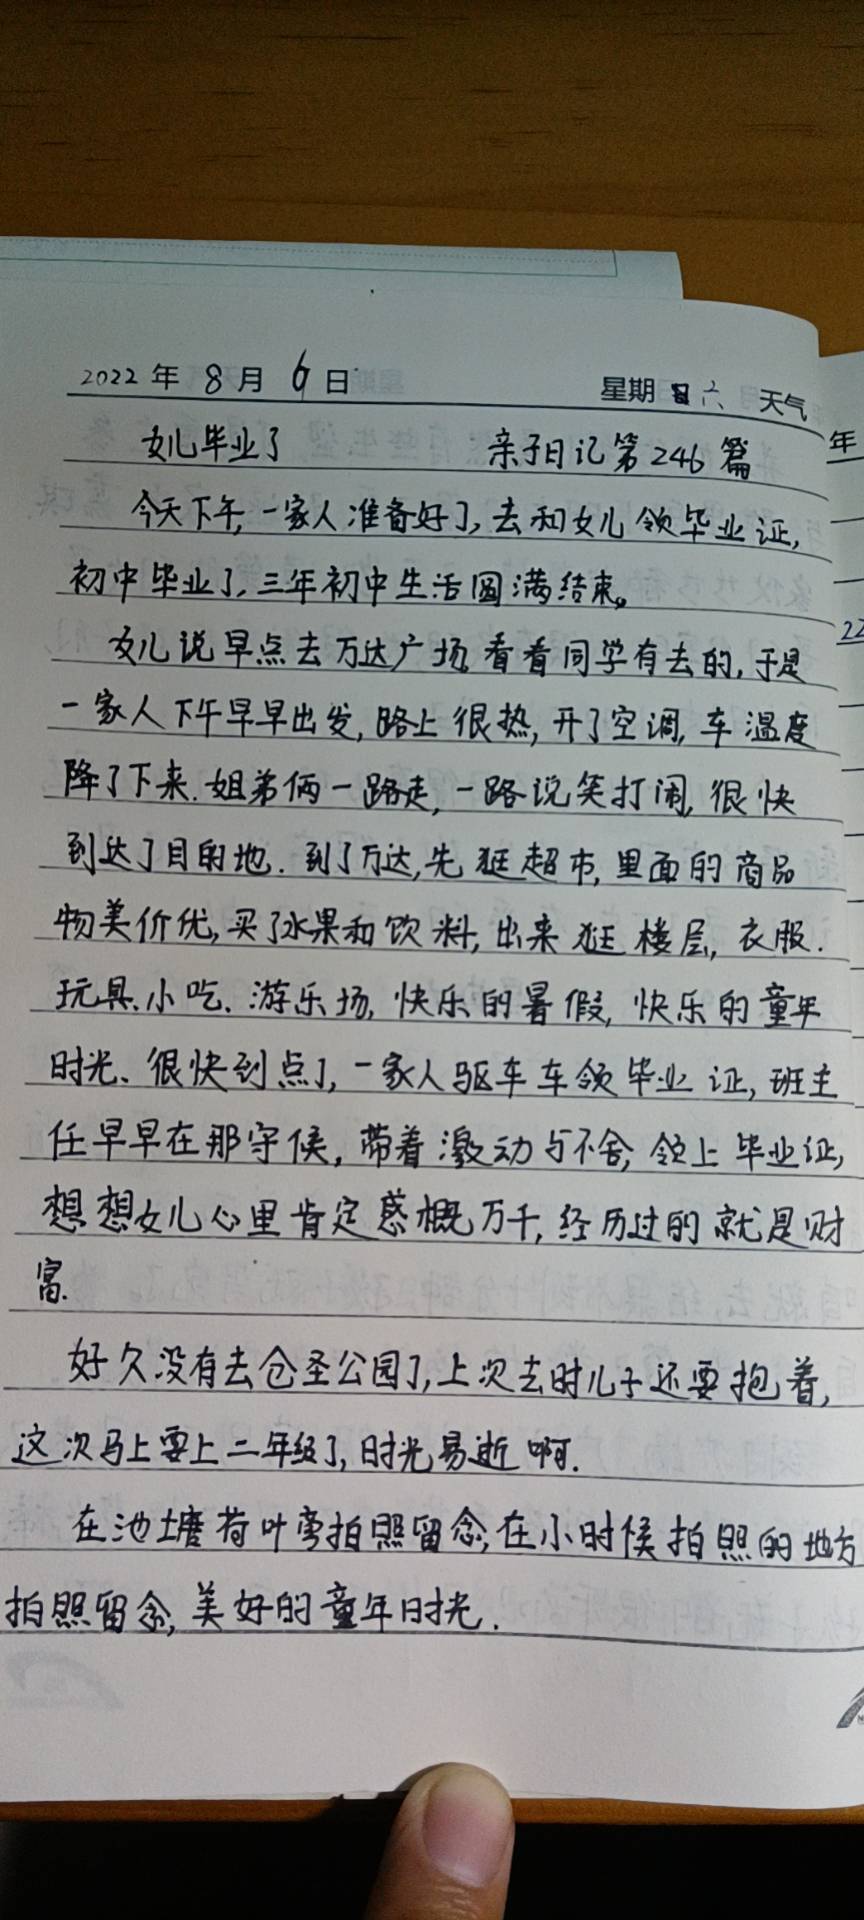 2022 年 8 月 6 日 星期 六 天气
女儿毕业了 亲子日记第246篇
今天下午,一家人准备好了,去和女儿领毕业证,
初中毕业了,三年初中生活圆满结束。
女儿说早点去万达广场,看看同学有去的,于是
一家人下午早早出发,路上很热,开了空调,车温度
降了下来.姐弟俩一路走,一路说笑打闹,很快
到达了目的地.到了万达,先逛超市,里面的商品
物美价优,买了水果和饮料,出来逛楼层,衣服.
玩具、小吃、游乐场,快乐的暑假,快乐的童年
时光、很快到点了,一家人驱车车领毕业证,班主
任早早在那守候,带着激动与不舍,领上毕业证,
想想女儿心里肯定感概万千,经历过的就是财
富.
好久没有去仓圣公园了,上次去时儿子还要抱着,
这次马上要上二年级了,时光易逝啊.
在池塘荷叶旁拍照留念,在小时候拍照的地方
拍照留念,美好的童年时光.
年
22